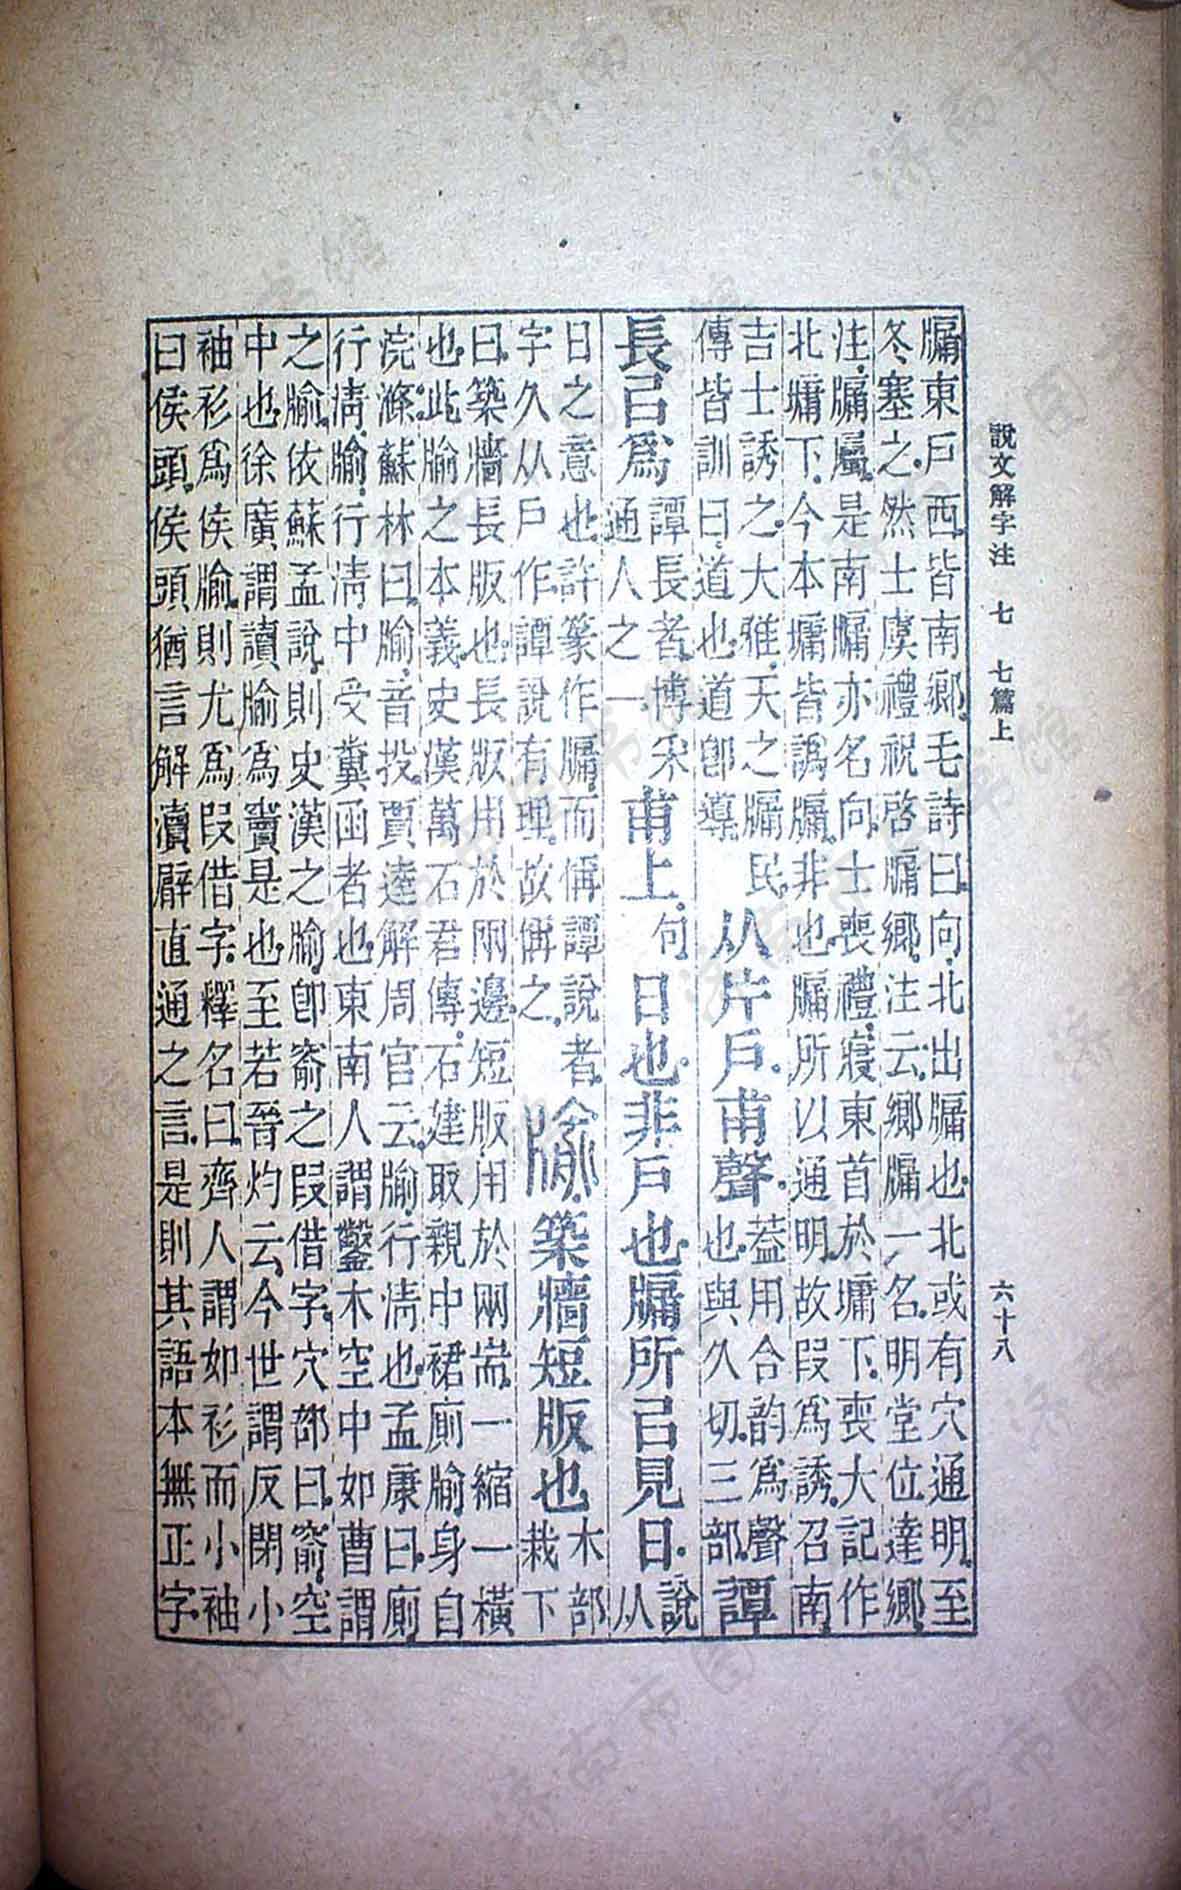 說文解字注 七 七篇上 六十八
牖東戶西皆南鄉毛詩曰向北出牖也北或有穴通明至
冬塞之然士虞禮祝啓牖鄉注云鄉牖一名明堂位達鄉
注牖屬是南牖亦名向士喪禮寢東首於墉下喪大記作
北墉下今本墉皆譌牖非也牖所以通明故叚爲誘召南
吉士誘之大雅天之牖民
傳皆訓曰道也道卽導
从片戶甫聲
蓋用合韵爲聲
也與久切三部
譚
長㠯爲
譚長者博釆
通人之一
甫上
句
日也非戶也牖所㠯見日
說
从
日之意也許篆作牖而偁譚說者
字久从戶作譚說有理故偁之
牏築牆短版也
木部
栽下
曰築牆長版也長版用於兩邊短版用於兩耑一縮一橫
也此牏之本義史漢萬石君傳石建取親中裙廁牏身自
浣滌蘇林曰牏音投賈逵解周官云牏行淸也孟康曰廁
行淸牏行淸中受糞函者也東南人謂鑿木空中如曹謂
之牏依蘇孟說則史漢之牏卽窬之叚借字穴部曰窬空
中也徐廣謂讀牏爲竇是也至若晉灼云今世謂反閉小
袖衫爲侯牏則尤爲叚借字釋名曰齊人謂如衫而小袖
曰侯頭侯頭猶言解瀆臂直通之言是則其語本無正字